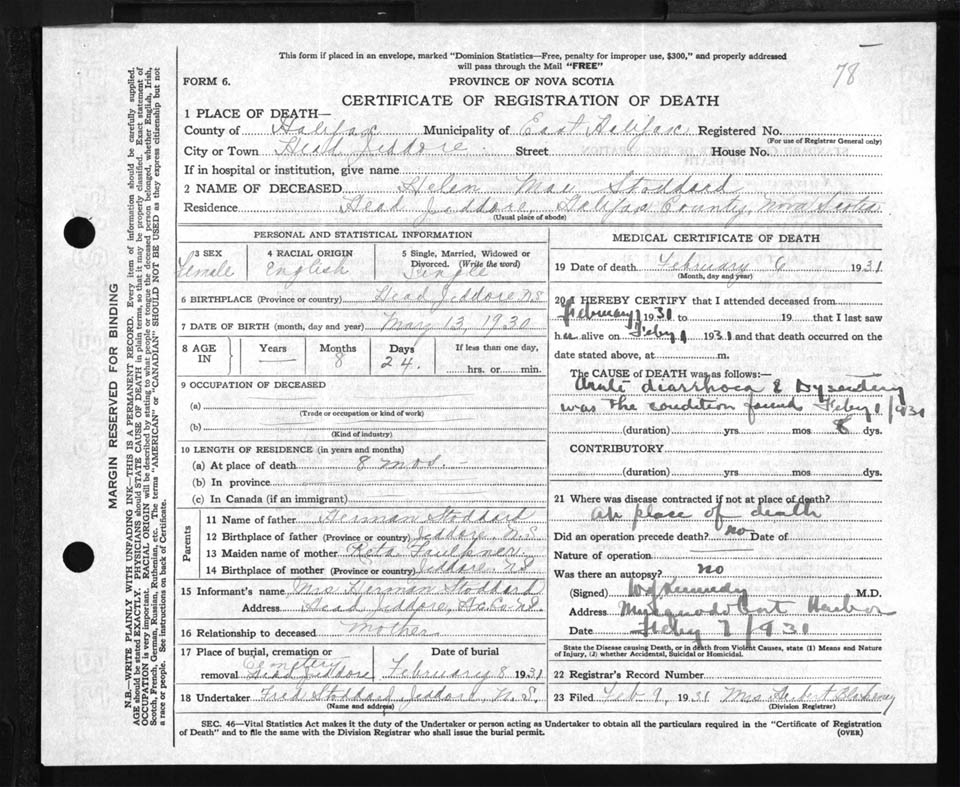 78
This form if placed in an envelope, marked "Dominion Statistics—Free, penalty for improper use, $300," and properly addressed
will pass through the Mail "FREE"
FORM 6.
PROVINCE OF NOVA SCOTIA
CERTIFICATE OF REGISTRATION OF DEATH
1 PLACE OF DEATH—
County of Halifax Municipality of East Halifax Registered No.
(For use of Registrar General only)
City or Town Head Jeddore Street House No.
If in hospital or institution, give name
2 NAME OF DECEASED Helen Mae Stoddard
Residence Head Jeddore, Halifax County, Nova Scotia
(Usual place of abode)
PERSONAL AND STATISTICAL INFORMATION
3 SEX 4 RACIAL ORIGIN 5 Single, Married, Widowed or
Divorced. (Write the word)
Female English Single
6 BIRTHPLACE (Province or country) Head Jeddore N.S.
7 DATE OF BIRTH (month, day and year) May 13, 1930
8 AGE IN Years Months Days If less than one day,
— 8 24. hrs. or min.
9 OCCUPATION OF DECEASED
(a)
(Trade or occupation or kind of work)
(b)
(Kind of industry)
10 LENGTH OF RESIDENCE (in years and months)
(a) At place of death 8 mos. -
(b) In province
(c) In Canada (if an immigrant)
Parents
11 Name of father Herman Stoddard
12 Birthplace of father (Province or country) Jeddore N.S.
13 Maiden name of mother Reta Faulkner
14 Birthplace of mother (Province or country) Jeddore. N.S.
15 Informant's name Mrs Herman Stoddard
Address Head Jeddore, Hx. Co. N.S.
16 Relationship to deceased Mother
17 Place of burial, cremation or Date of burial
removal Cemetery Head Jeddore February 8 1931
18 Undertaker Fred Stoddard Jeddore N.S.
(Name and address)
MEDICAL CERTIFICATE OF DEATH
19 Date of death February 6 1931
(Month, day and year)
20 I HEREBY CERTIFY that I attended deceased from
February 1 1931 to 19 that I last saw
her alive on Feby 1 1931 and that death occurred on the
date stated above, at m.
The CAUSE of DEATH was as follows:
Acute diarrhoea & Dysentery
was the condition found Feby 1/931
(duration) yrs. mos 8 dys.
CONTRIBUTORY
(duration) yrs. mos dys.
21 Where was disease contracted if not at place of death?
At place of death
Did an operation precede death? no Date of
Nature of operation
Was there an autopsy? no
(Signed) Kennedy M.D.
Address Musquodoboit Harbor
Date Feby 7/931
State the Disease causing Death, or in death from Violent Causes, state (1) Means and Nature
of Injury, (2) whether Accidental, Suicidal or Homicidal.
22 Registrar's Record Number
23 Filed Feb 9, 1931 Mrs Herbert Blakeney
(Division Registrar)
SEC. 46—Vital Statistics Act makes it the duty of the Undertaker or person acting as Undertaker to obtain all the particulars required in the "Certificate of Registration
of Death" and to file the same with the Division Registrar who shall issue the burial permit.
(OVER)
MARGIN RESERVED FOR BINDING
N.B.—WRITE PLAINLY WITH UNFADING INK—THIS IS A PERMANENT RECORD. Every item of information should be carefully supplied.
AGE should be stated EXACTLY. PHYSICIANS should STATE CAUSE OF DEATH in plain terms, so that it may be properly classified. Exact statement of
OCCUPATION is very important. RACIAL ORIGIN will be described by stating to what people or tongue the deceased person belonged, whether English, Irish,
Scotch, French, German, Russian, Ruthenian, etc. The terms "AMERICAN" or "CANADIAN" SHOULD NOT BE USED as they express citizenship but not
a race or people. See instructions on back of Certificate.